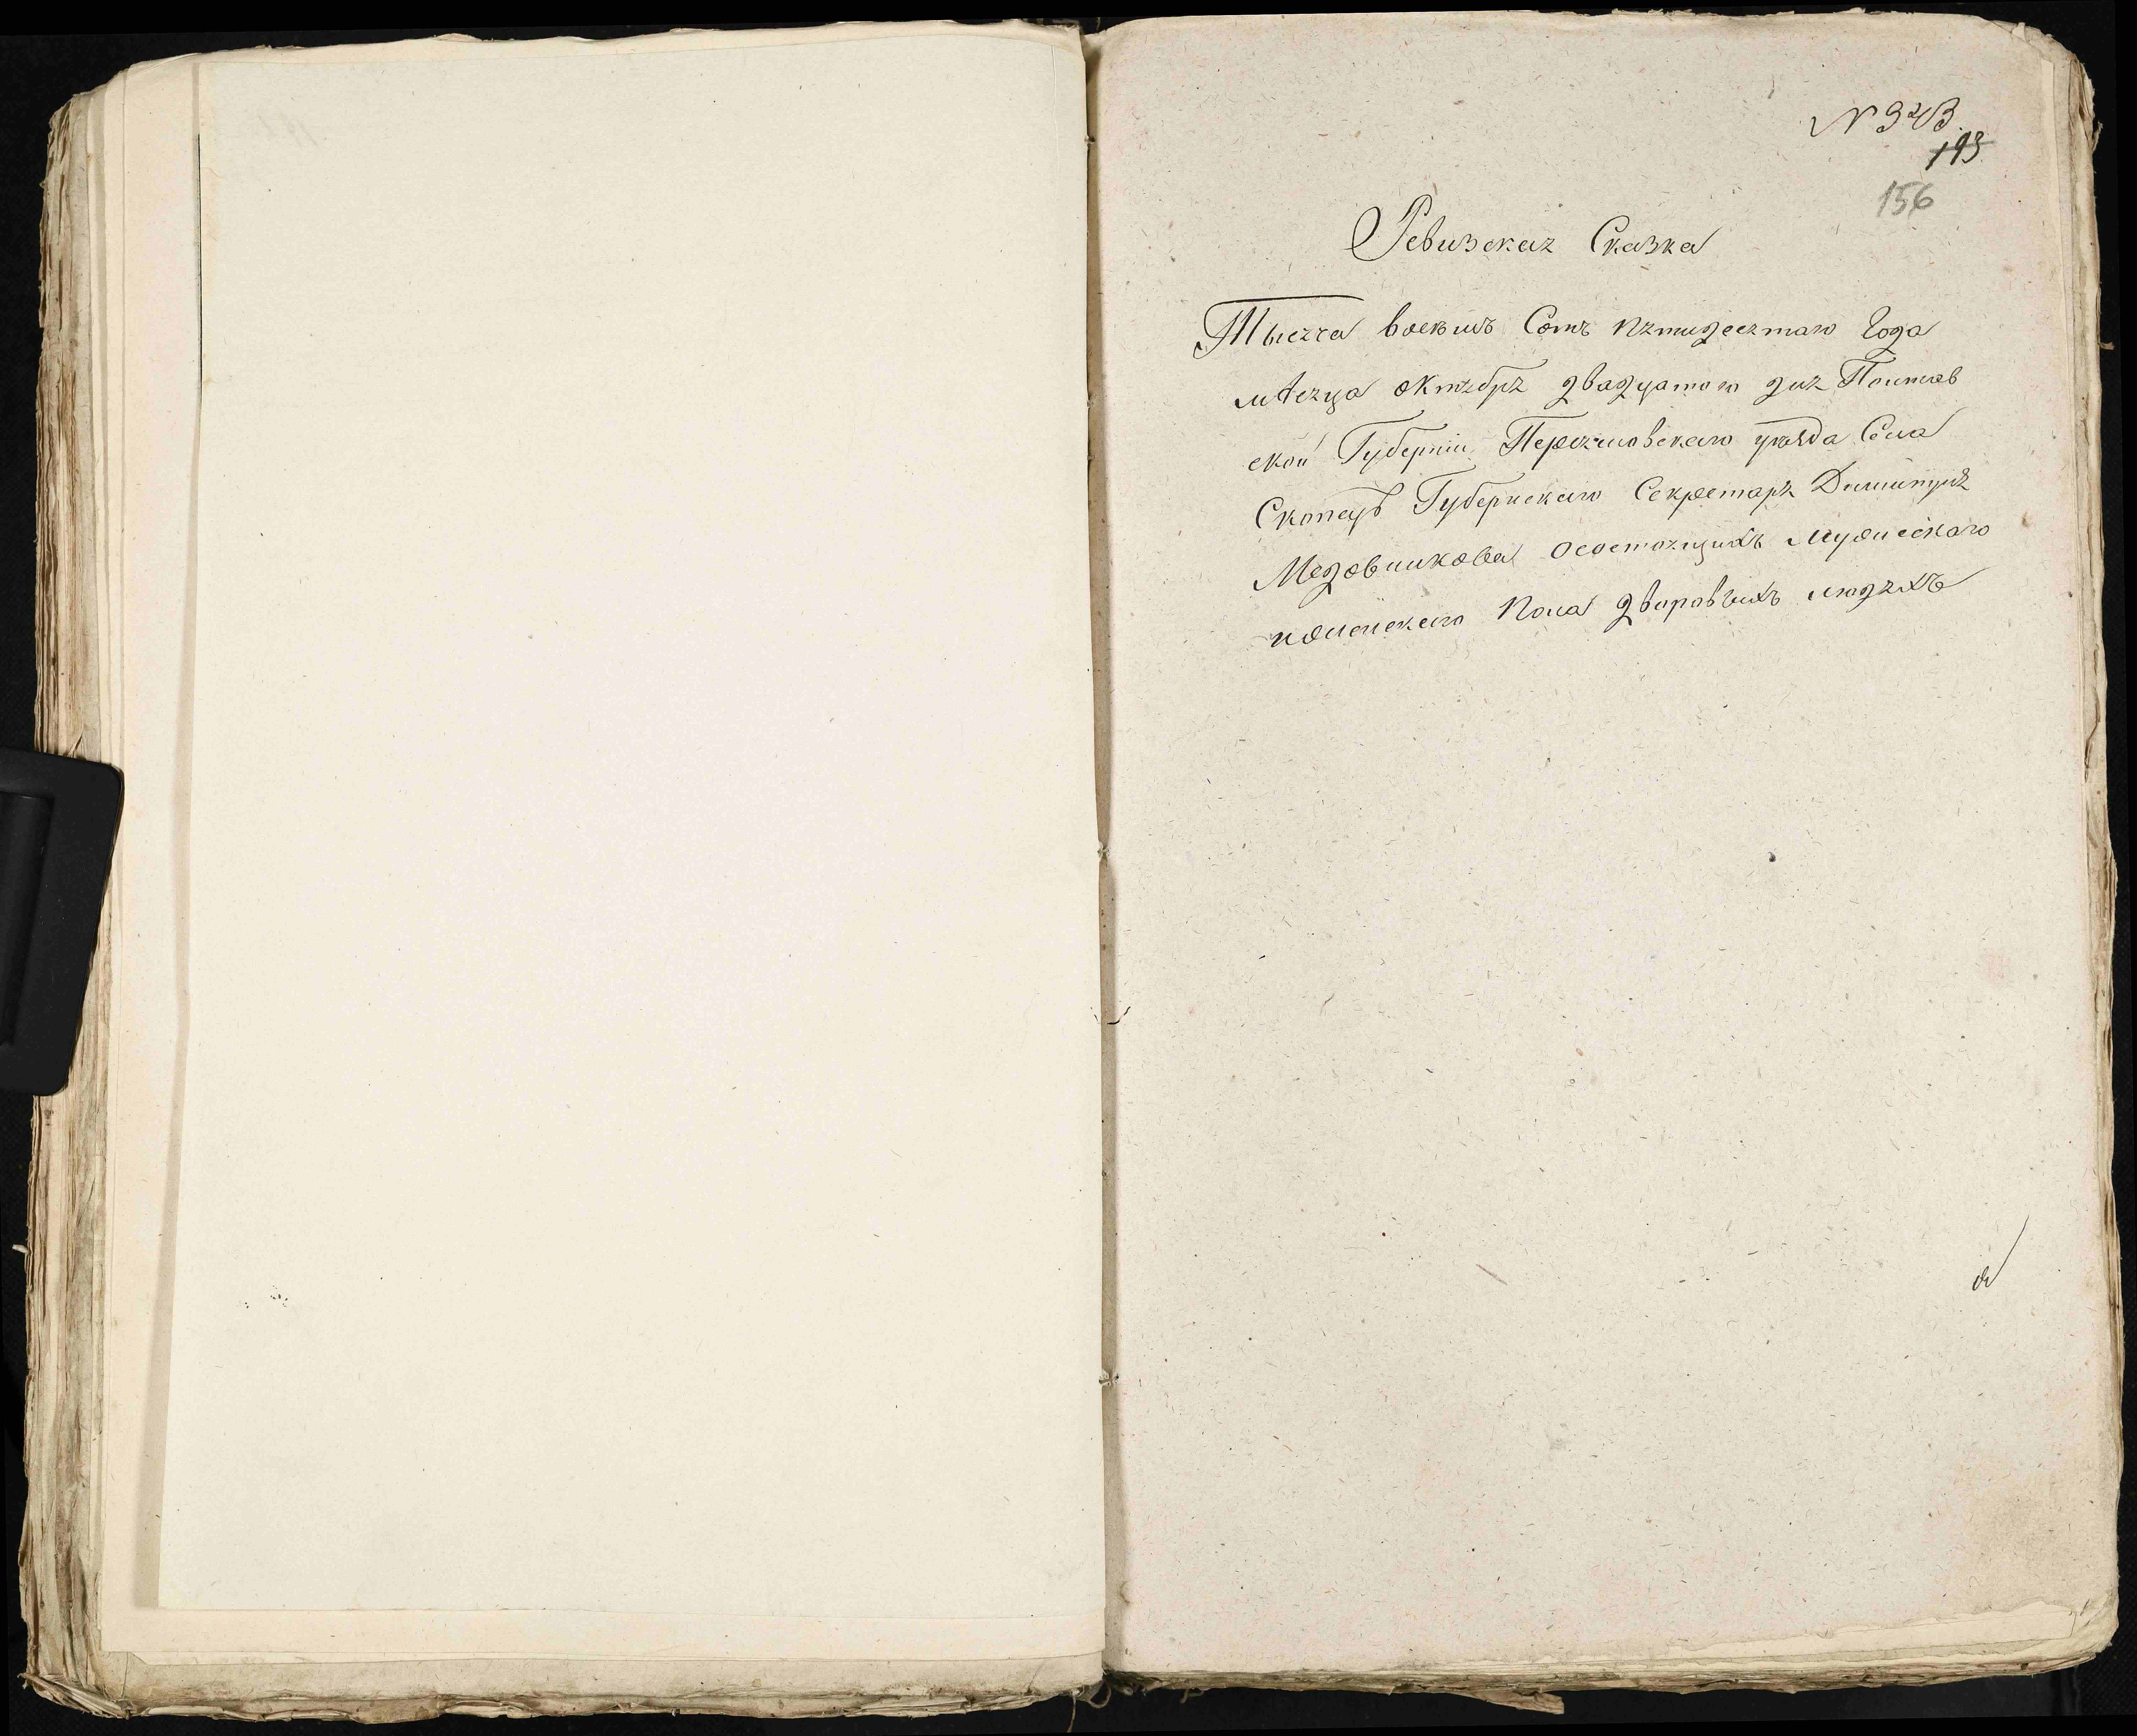 N 343
193
156
Ревизская Сказка
Тысяча восемь Сотъ пятидесятаго Года
мѣсяца октября двадцатого дня Полтав
ской Губерніи Переяславскаго уѣзда Села
Скопецъ Губернскаго Секретаря Димитрія
Медовникова осостоящихъ мужескаго
иженскаго пола дворовыхъ людяхъ